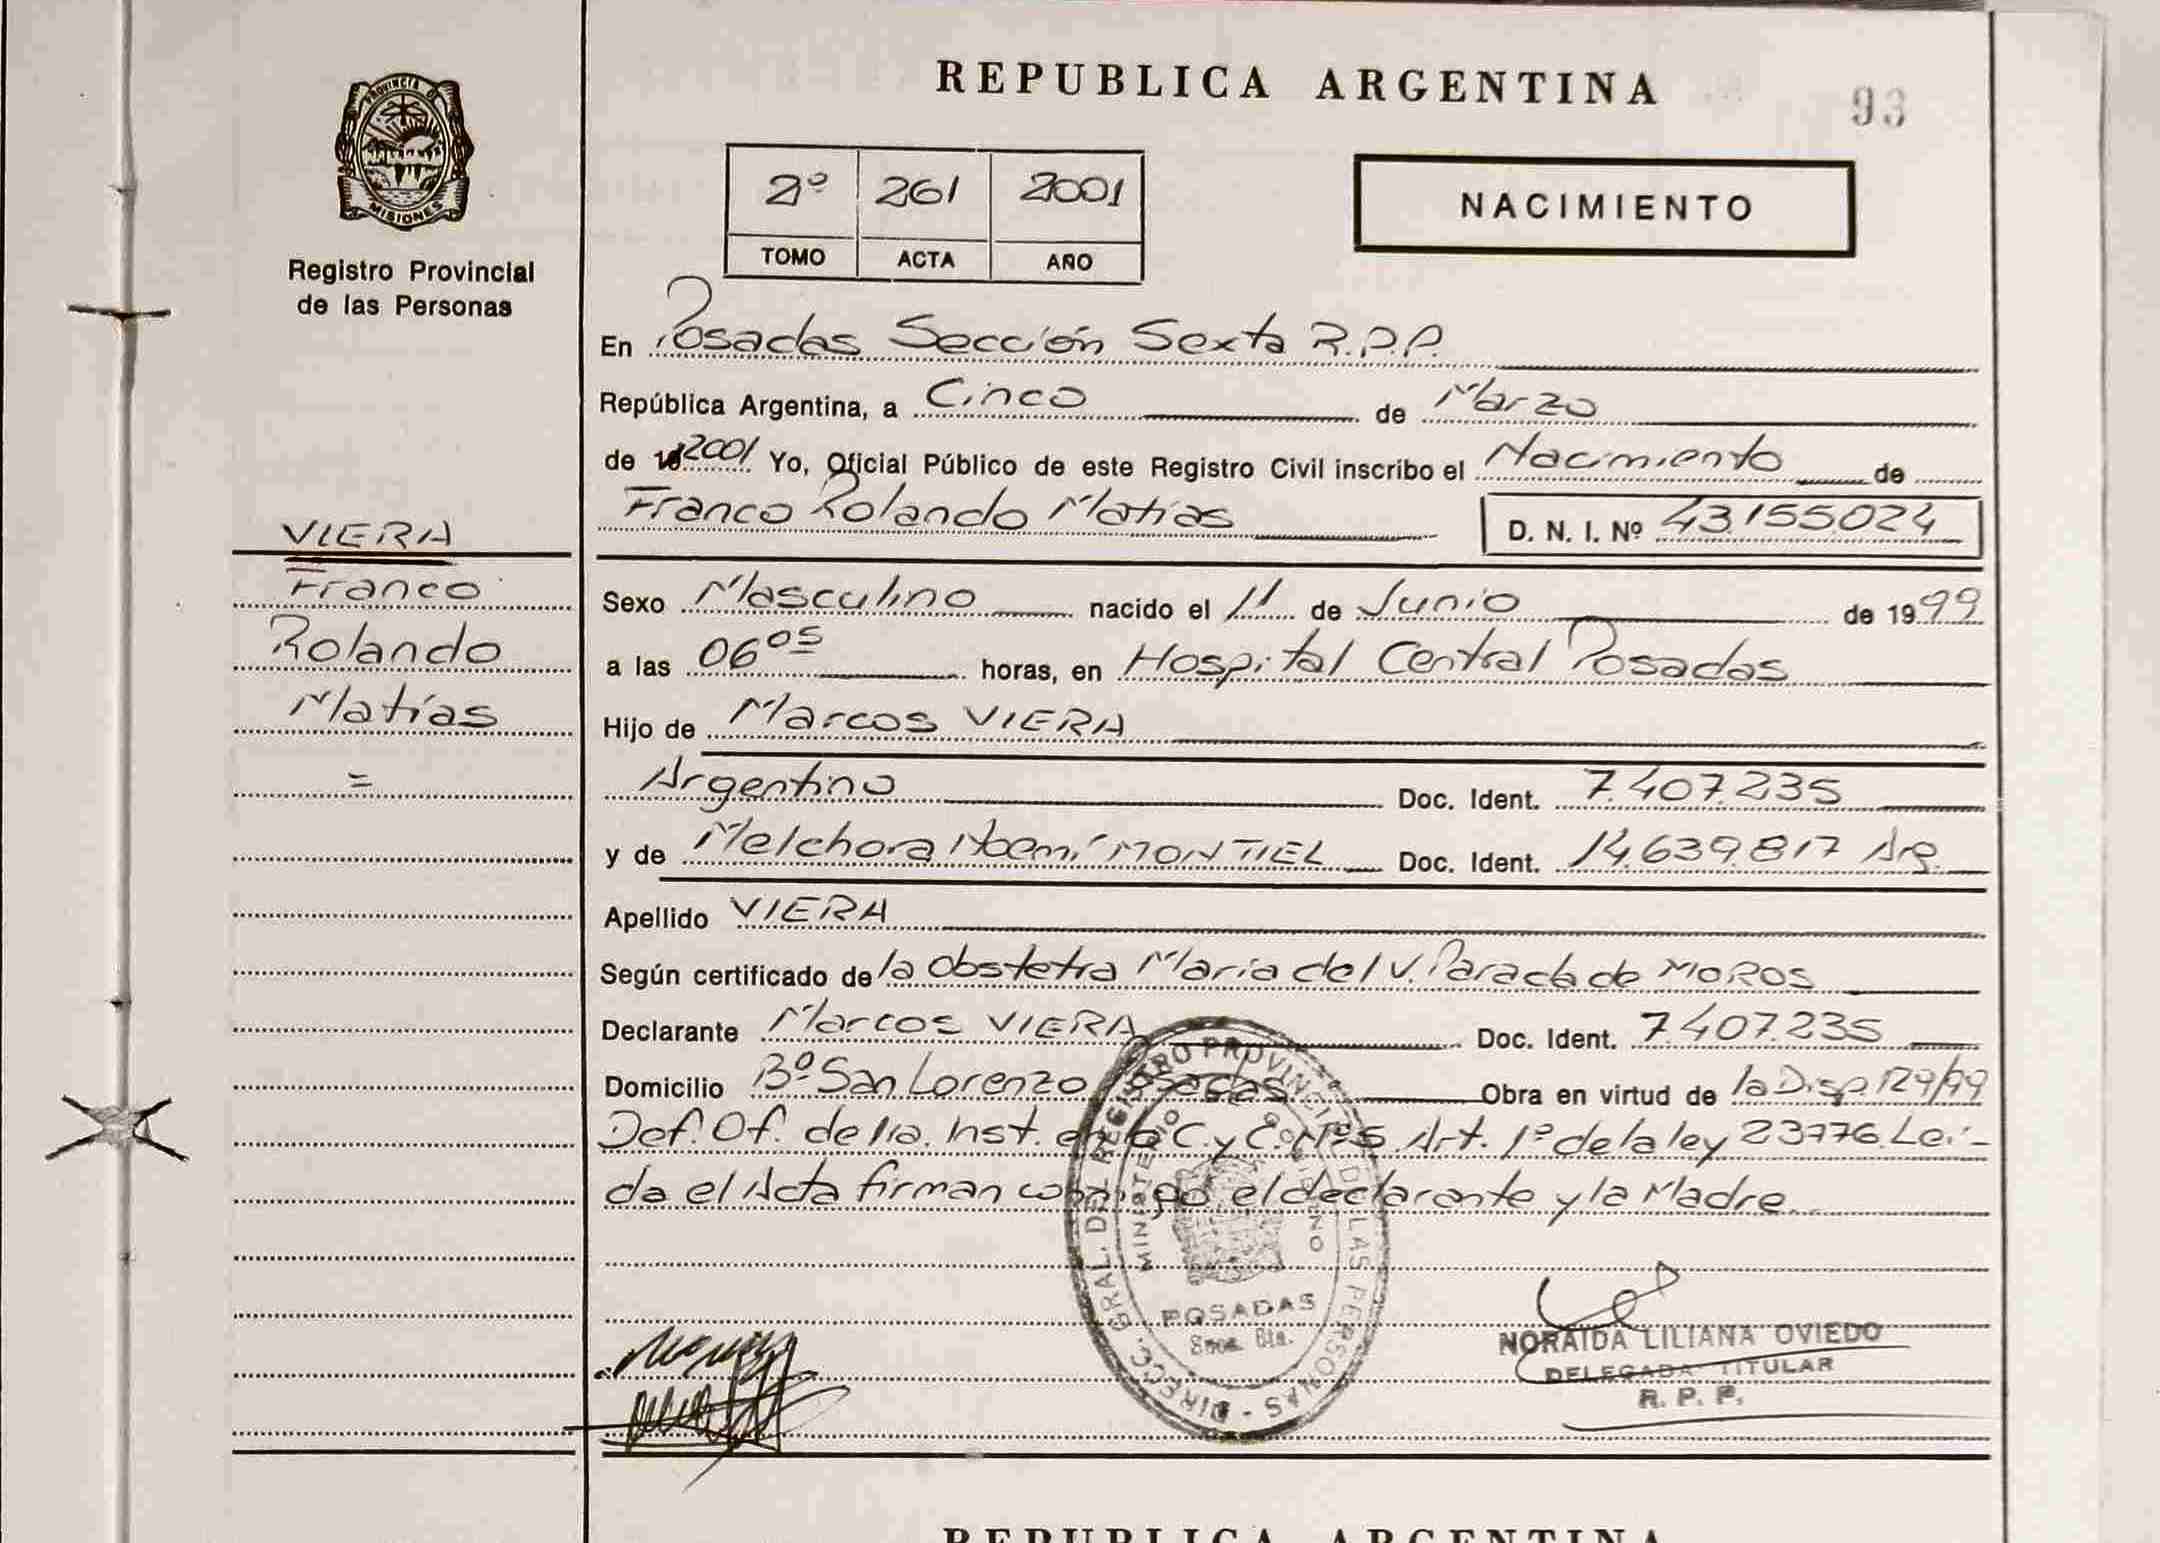 REPUBLICA ARGENTINA
93
PROVINCIA DE
MISIONES
Registro Provincial
de las Personas
2º 261 2001
TOMO ACTA AÑO
NACIMIENTO
En Posadas Sección Sexta R.P.P.
República Argentina, a Cinco de Marzo
de 2001 Yo, Oficial Público de este Registro Civil inscribo el Nacimiento de
Franco Rolando Matías D. N. I. Nº 43.155024
VIERA
Franco
Rolando
Matías
=
Sexo Masculino nacido el 11 de Junio de 1999
a las 06⁰⁵ horas, en Hospital Central Posadas
Hijo de Marcos VIERA
Argentino Doc. Ident. 7.407.235
y de Melchora Noemí MONTIEL Doc. Ident. 14.639.817 Arg.
Apellido VIERA
Según certificado de la obstetra María del V. Parada de MOROS
Declarante Marcos VIERA Doc. Ident. 7.407.235
Domicilio Bº San Lorenzo Posadas Obra en virtud de la Disp. 129/99
Def. Of. de 1ra. Inst. en lo C. y C. Nº 5. Art. 1º de la ley 23776. Leí-
da el Acta firman conmigo el declarante y la Madre.
DIRECC. GRAL. DEL REGISTRO PROVINCIAL DE LAS PERSONAS
MINISTERIO DE GOBIERNO
POSADAS
Secc. 6ta.
NORAIDA LILIANA OVIEDO
DELEGADA TITULAR
R. P. P.
REPUBLICA ARGENTINA